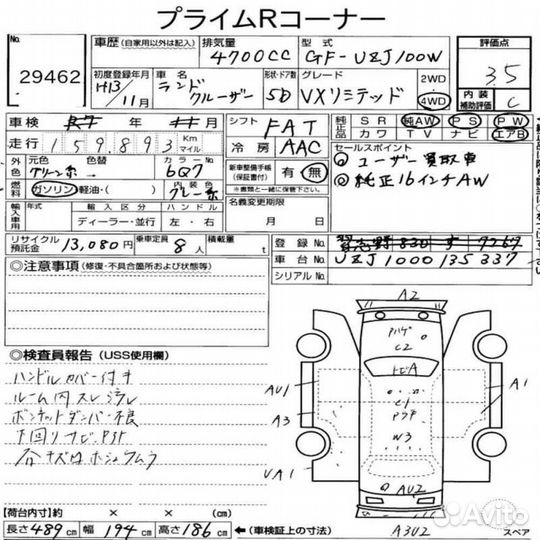 プライムRコーナー
No.
29462
車歴 (自家用以外は記入)
排気量
4700CC
型式
GF-UZJ100W
評価点
3.5
初度登録年月
H13/11月
車名
ランドクルーザー
形状・ドア数
5D
グレード
VXリミテッド
2WD
4WD
内装補助評価
C
車検 年 月
走行 159,893 Km マイル
シフト
FAT
冷房
AAC
純正品
SR
純AW
PS
PW
カワ
TV
ナビ
エアB
外色
元色
色替
カラーNo.
グリーン系
6Q7
新車整備手帳(保証書付)
有・無
※書類と一緒に提出して下さい。
セールスポイント
①ユーザー買取車
②純正16インチAW
燃料
ガソリン・軽油・( )
内装色
グレー系
名義変更期限
月 日
輸入車用
年式
輸入区分
ハンドル
ディーラー・並行
左・右
リサイクル預託金
13,080円
乗車定員
8人
積載量
t
登録No.
車台No.
UZJ1000135337
シリアルNo.
◎注意事項 (修復・不具合箇所および状態)
◎検査員報告 (USS使用欄)
ハンドルカバー付キ
ルーム内スレ
ボンネットダンパー不良
下回りサビ
A2
C2
AU1
A3
UA1
A1
C1
W3
AU2
A3U2
スペア
【荷台内寸】 約 × × (cm)
長さ 489cm
幅 194cm
高さ 186cm
◆(車検証上の寸法)
Avito